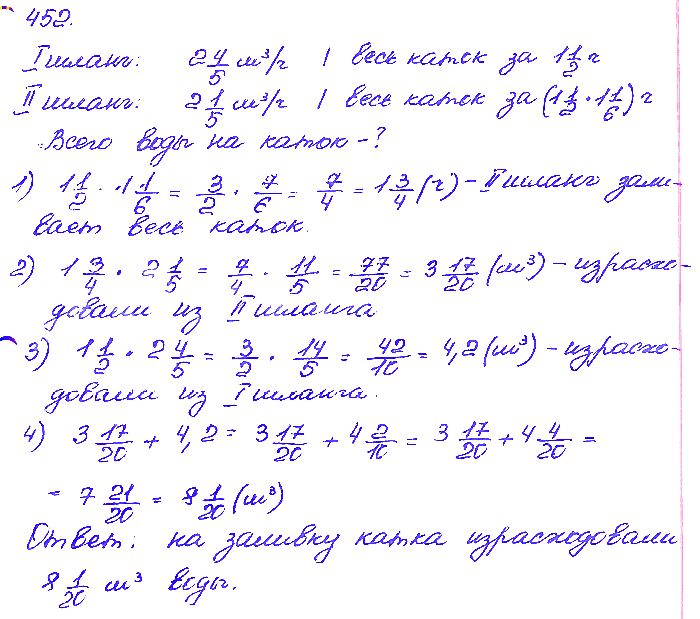 452.
I шланг: 2 4/5 м³/ч | весь каток за 1 1/2 ч
II шланг: 2 1/5 м³/ч | весь каток за (1 1/2 · 1 1/6) ч
Всего воды на каток - ?
1) 1 1/2 · 1 1/6 = 3/2 · 7/6 = 7/4 = 1 3/4 (ч) - II шланг зали-
вает весь каток.
2) 1 3/4 · 2 1/5 = 7/4 · 11/5 = 77/20 = 3 17/20 (м³) - израсхо-
довали из II шланга
3) 1 1/2 · 2 4/5 = 3/2 · 14/5 = 42/10 = 4,2 (м³) - израсхо-
довали из I шланга.
4) 3 17/20 + 4,2 = 3 17/20 + 4 2/10 = 3 17/20 + 4 4/20 =
= 7 21/20 = 8 1/20 (м³)
Ответ: на заливку катка израсходовали
8 1/20 м³ воды.